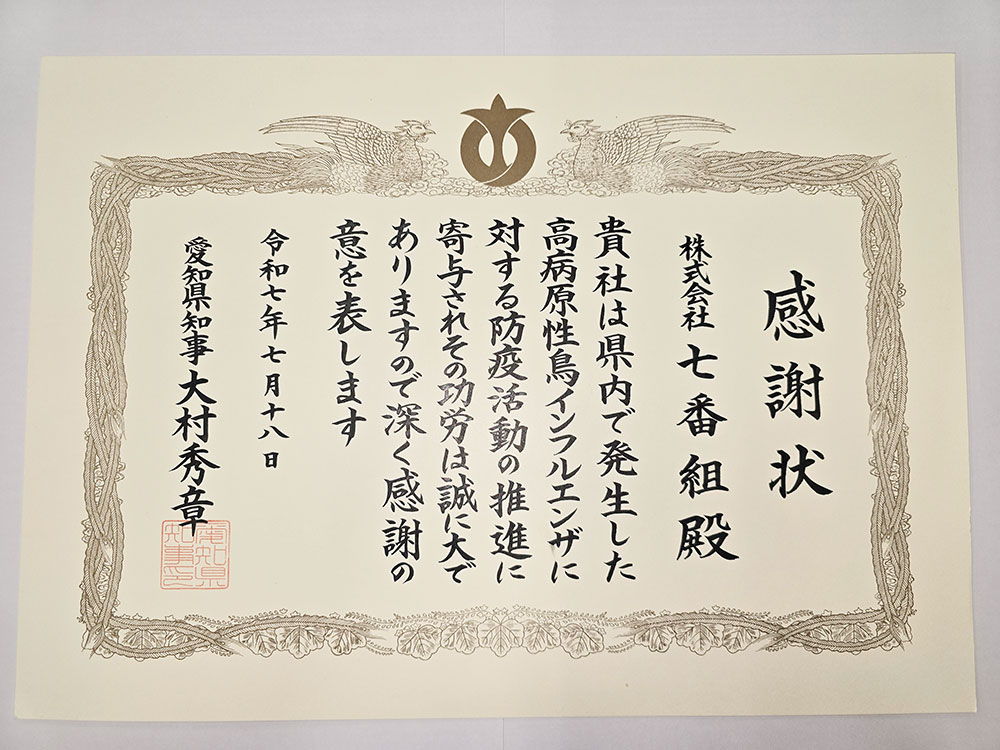 感謝状
株式会社 七番組殿
貴社は県内で発生した
高病原性鳥インフルエンザに
対する防疫活動の推進に
寄与されその功労は誠に大で
ありますので深く感謝の
意を表します
令和七年七月十八日
愛知県知事 大村秀章
愛知県
知事之印